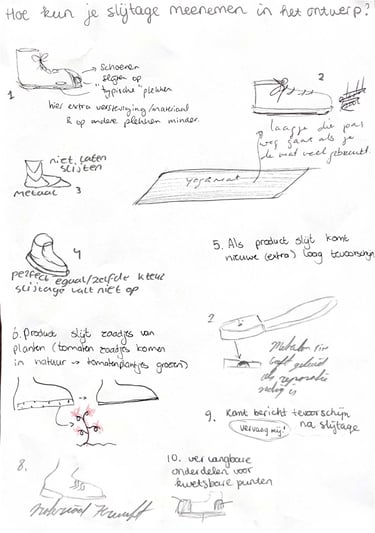 Hoe kun je slijtage meenemen in het ontwerp?
1
schoenen
slijten op
"typische" plekken
hier extra versteviging/materiaal
& op andere plekken minder.
2
laagje die pas
weg gaat als je
de mat veel gebruikt.
yogamat
niet laten
slijten
metaal 3
4
perfect egaal/zelfde kleur
slijtage valt niet op
5. Als product slijt komt
nieuwe (extra) laag tevoorschijn
6. Product slijt zaadjes van
planten (tomaten zaadjes komen
in natuur → tomatenplantjes groeien)
als reparatie
nodig is
9. komt bericht tevoorschijn
na slijtage
vervang mij!
8.
materiaal
10. vervangbare
onderdelen voor
kwetsbare punten